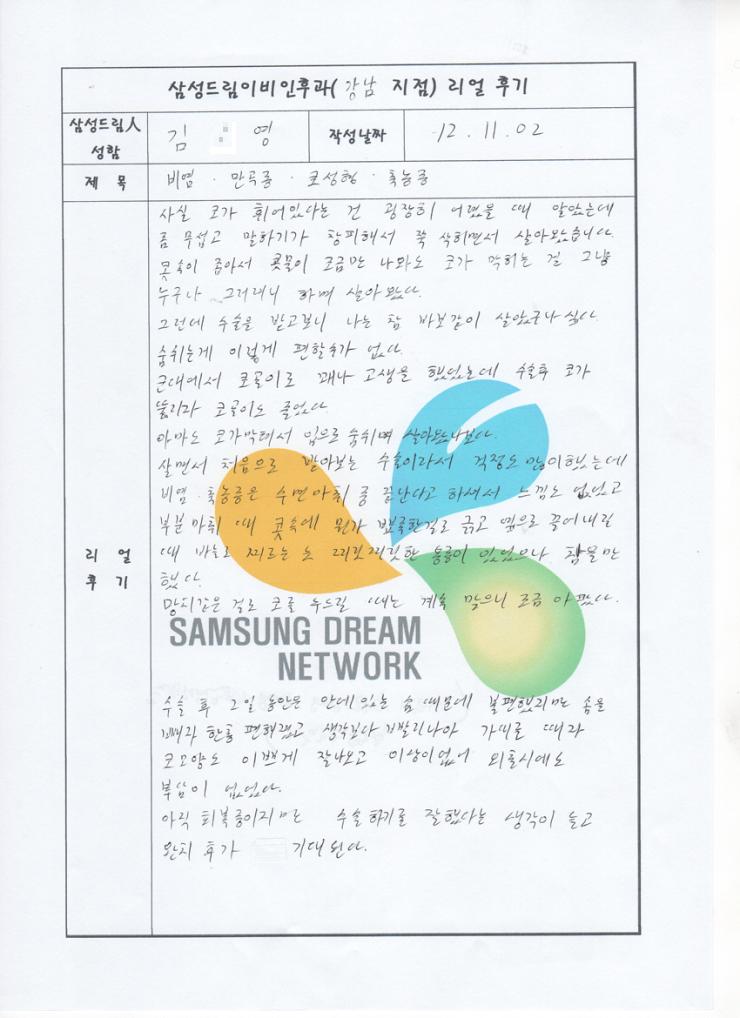 삼성드림이비인후과( 강남 지점) 리얼 후기
삼성드림人 성함
김 영
작성날짜
12. 11. 02
제 목
비염 · 만곡증 · 코성형 · 축농증
리 얼 후 기
사실 코가 휘어있다는 건 굉장히 어렸을 때 알았는데
좀 무섭고 말하기가 창피해서 쭉 삭히면서 살아왔습니다.
콧속이 좁아서 콧물이 조금만 나와도 코가 막히는 걸 그냥
누구나 그러려니 하며 살아왔다.
그런데 수술을 받고보니 나는 참 바보같이 살았구나 싶다.
숨쉬는게 이렇게 편할수가 없다.
군대에서 코골이로 꽤나 고생을 했었는데 수술후 코가
뚫리자 코골이도 줄었다.
아마도 코가막혀서 입으로 숨쉬며 살아왔나보다.
살면서 처음으로 받아보는 수술이라서 걱정도 많이했는데
비염·축농증은 수면마취 중 끝난다고 하셔서 느낌도 없었고
부분마취 때 콧속에 뭔가 뾰족한걸로 긁고 옆으로 끌어내릴
때 바늘로 찌르는 듯 찌릿찌릿한 통증이 있었으나 참을만
했다.
망치같은 걸로 코를 두드릴 때는 계속 맞으니 조금 아팠다.
SAMSUNG DREAM
NETWORK
수술 후 2일 동안은 안에있는 솜 때문에 불편했지만 솜을
빼자 한층 편해졌고 생각보다 빨리나아 가때를 때자
코모양도 이쁘게 잘나오고 이상이없어 외출시에도
부담이 없었다.
아직 회복중이지만 수술하기를 잘했다는 생각이 들고
완치 후가 기대된다.